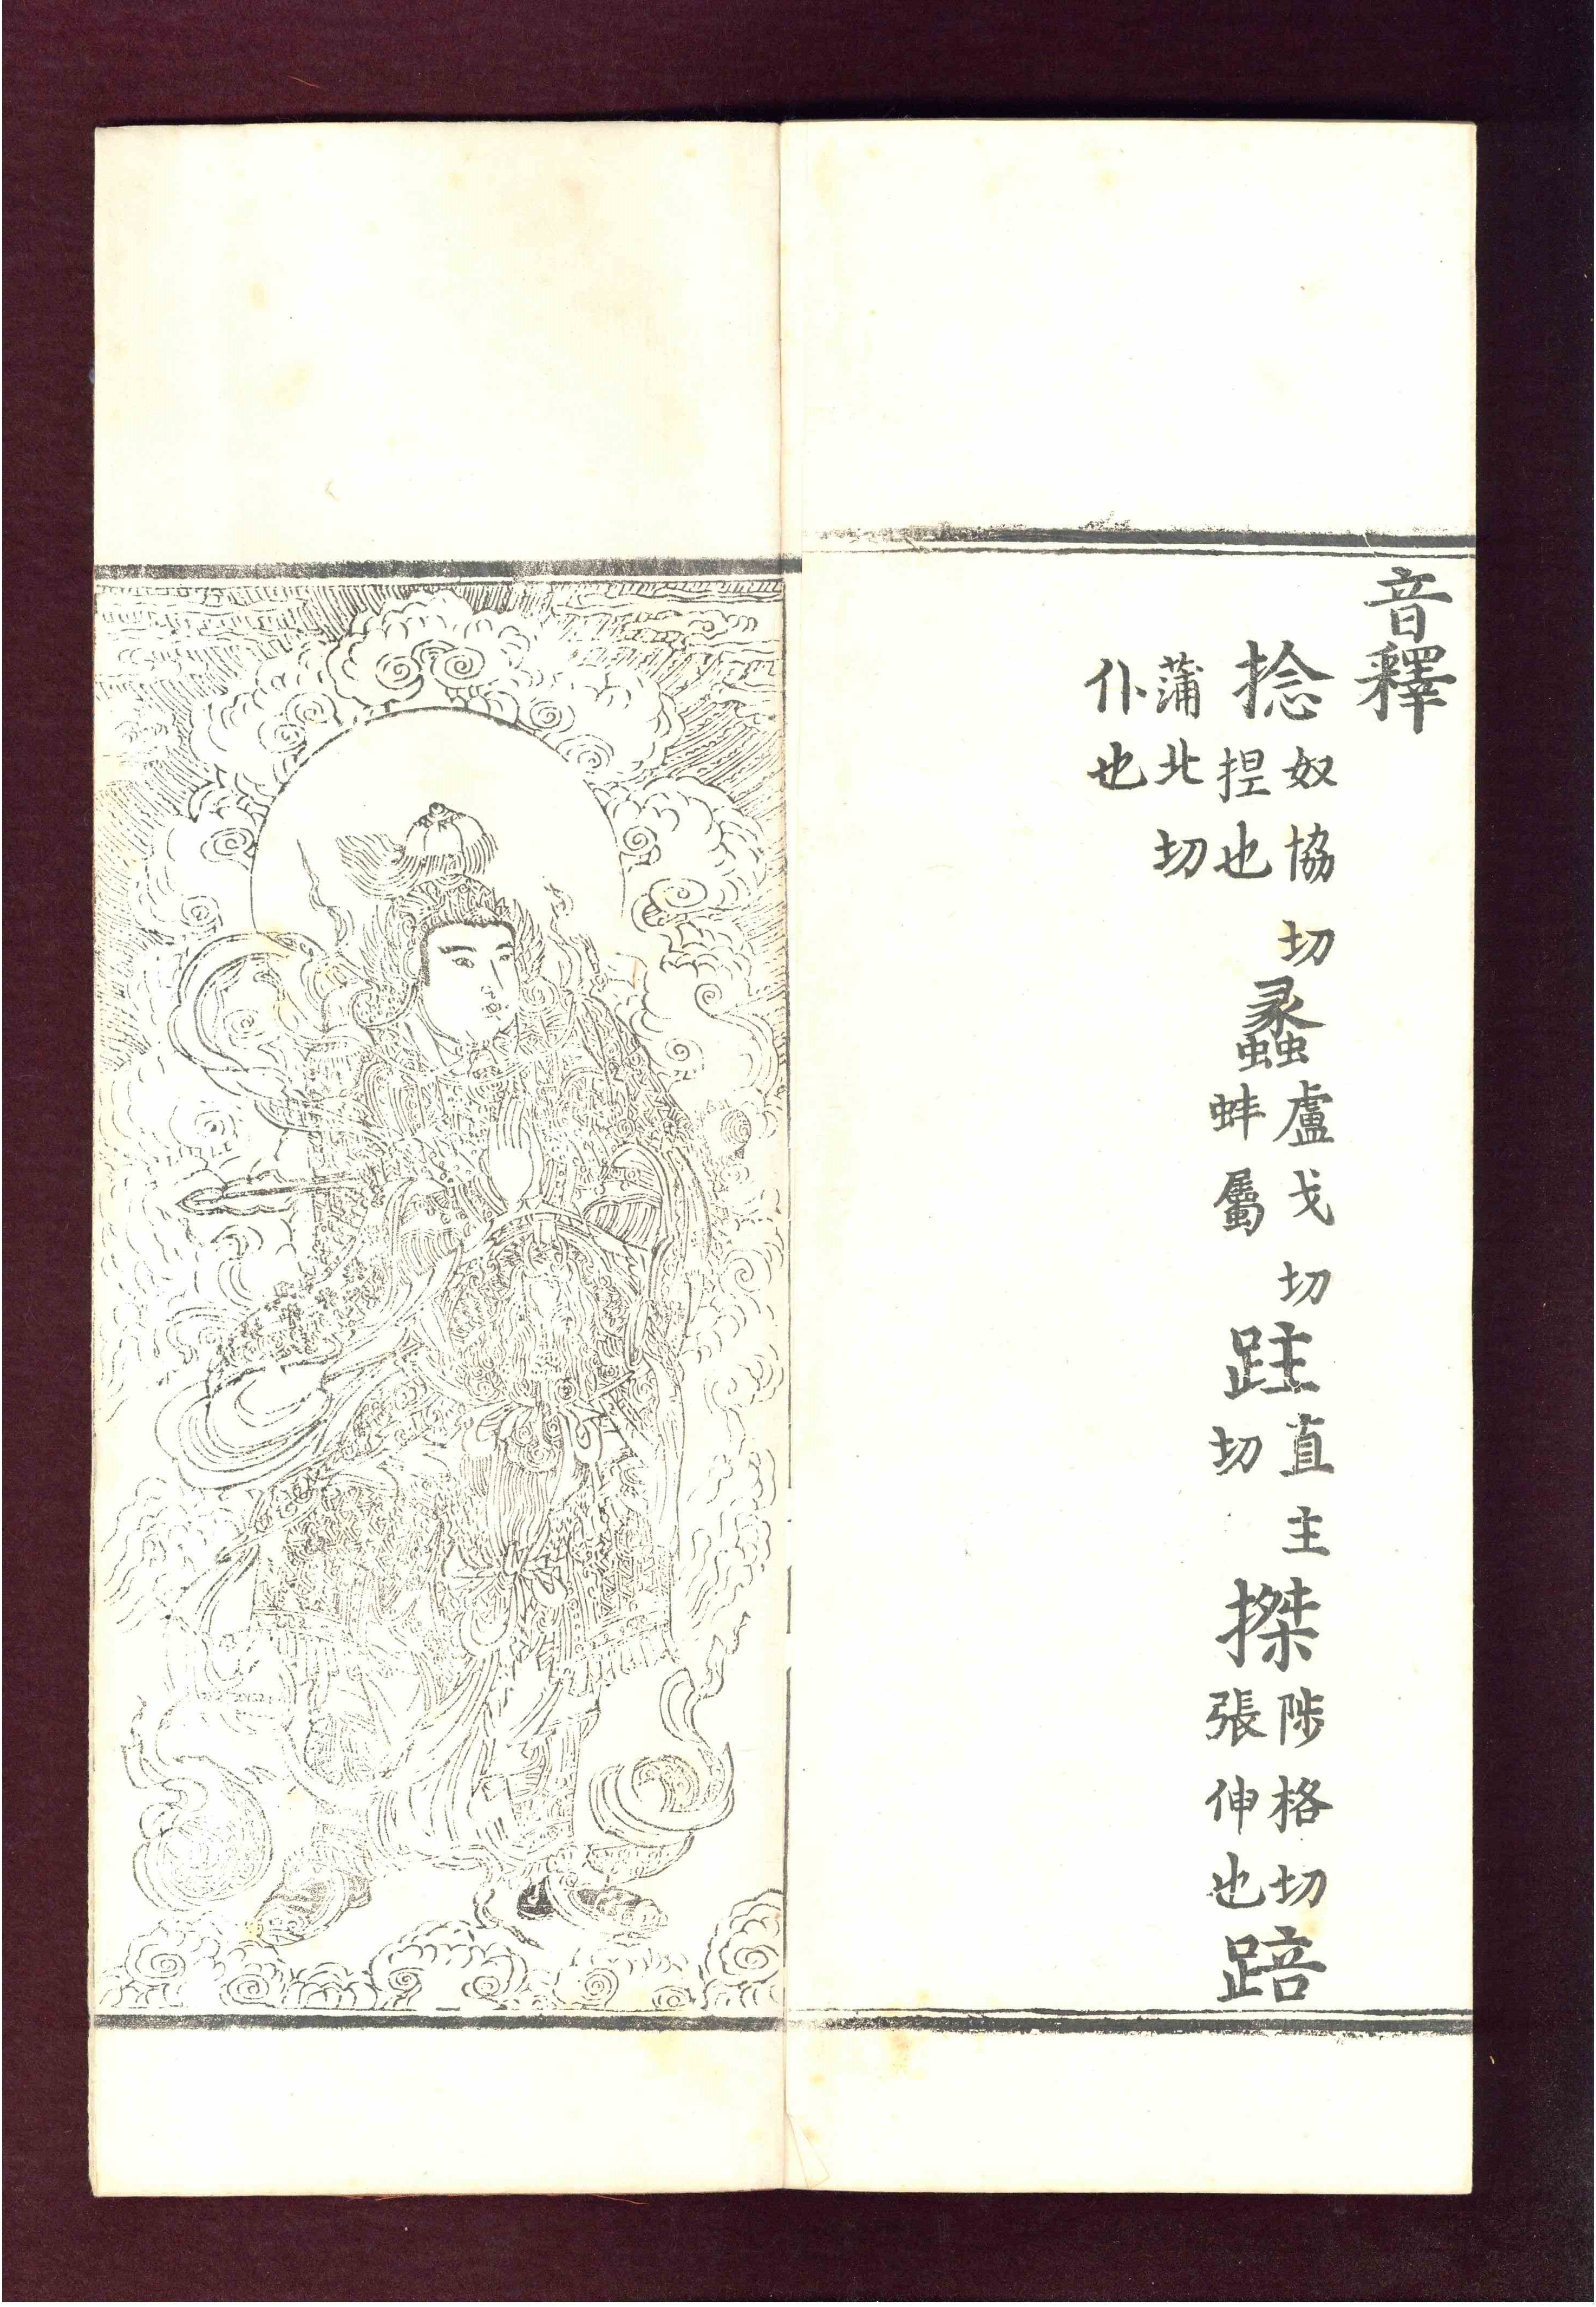 音釋
捻奴協切捏也蠡盧戈切蚌屬跓直主切搩陟格切張伸也踣
蒲北切仆也